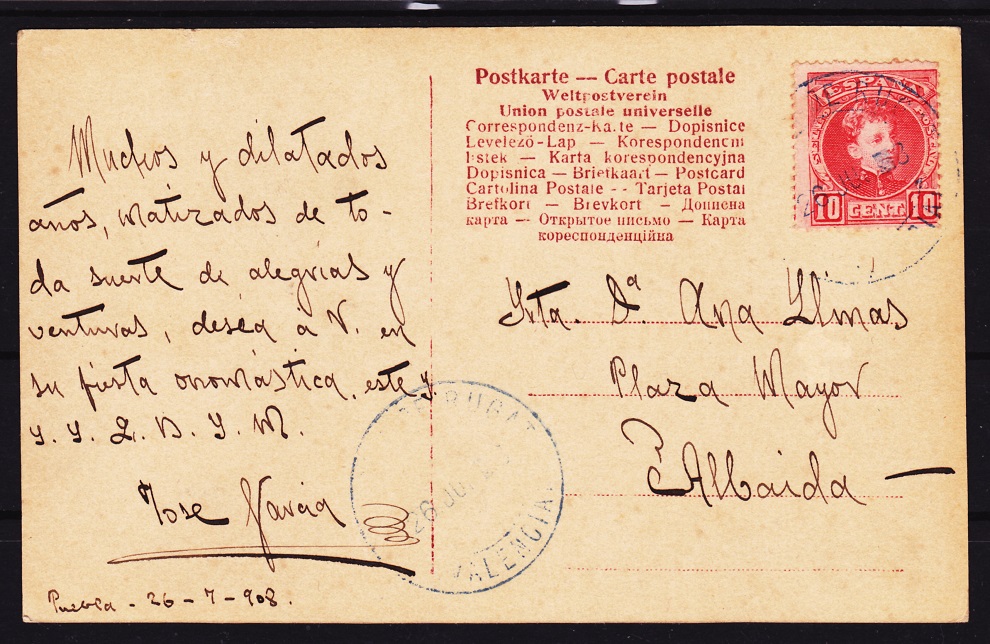 Muchos y dilatados
años, matizados de to-
da suerte de alegrías y
venturas, desea á V. en
su fiesta onomástica, este
S. S. Q. B. S. M.
Jose Garcia
Puebla - 26 - 7 - 908.
Postkarte — Carte postale
Weltpostverein
Union postale universelle
Correspondenz-Karte — Dopisnice
Levelező-Lap — Korespondencni
listek — Karta korespondencyjna
Dopisnica — Briefkaart — Postcard
Cartolina Postale -- Tarjeta Postal
Brefkort — Brevkort — Дописна
карта — Открытое письмо — Карта
кореспонденційна
ESPAÑA
10 CENT 10
Srta. Dª Ana Llinas
Plaza Mayor
Albaida
RUGAT
26 JUL
VALENCIA